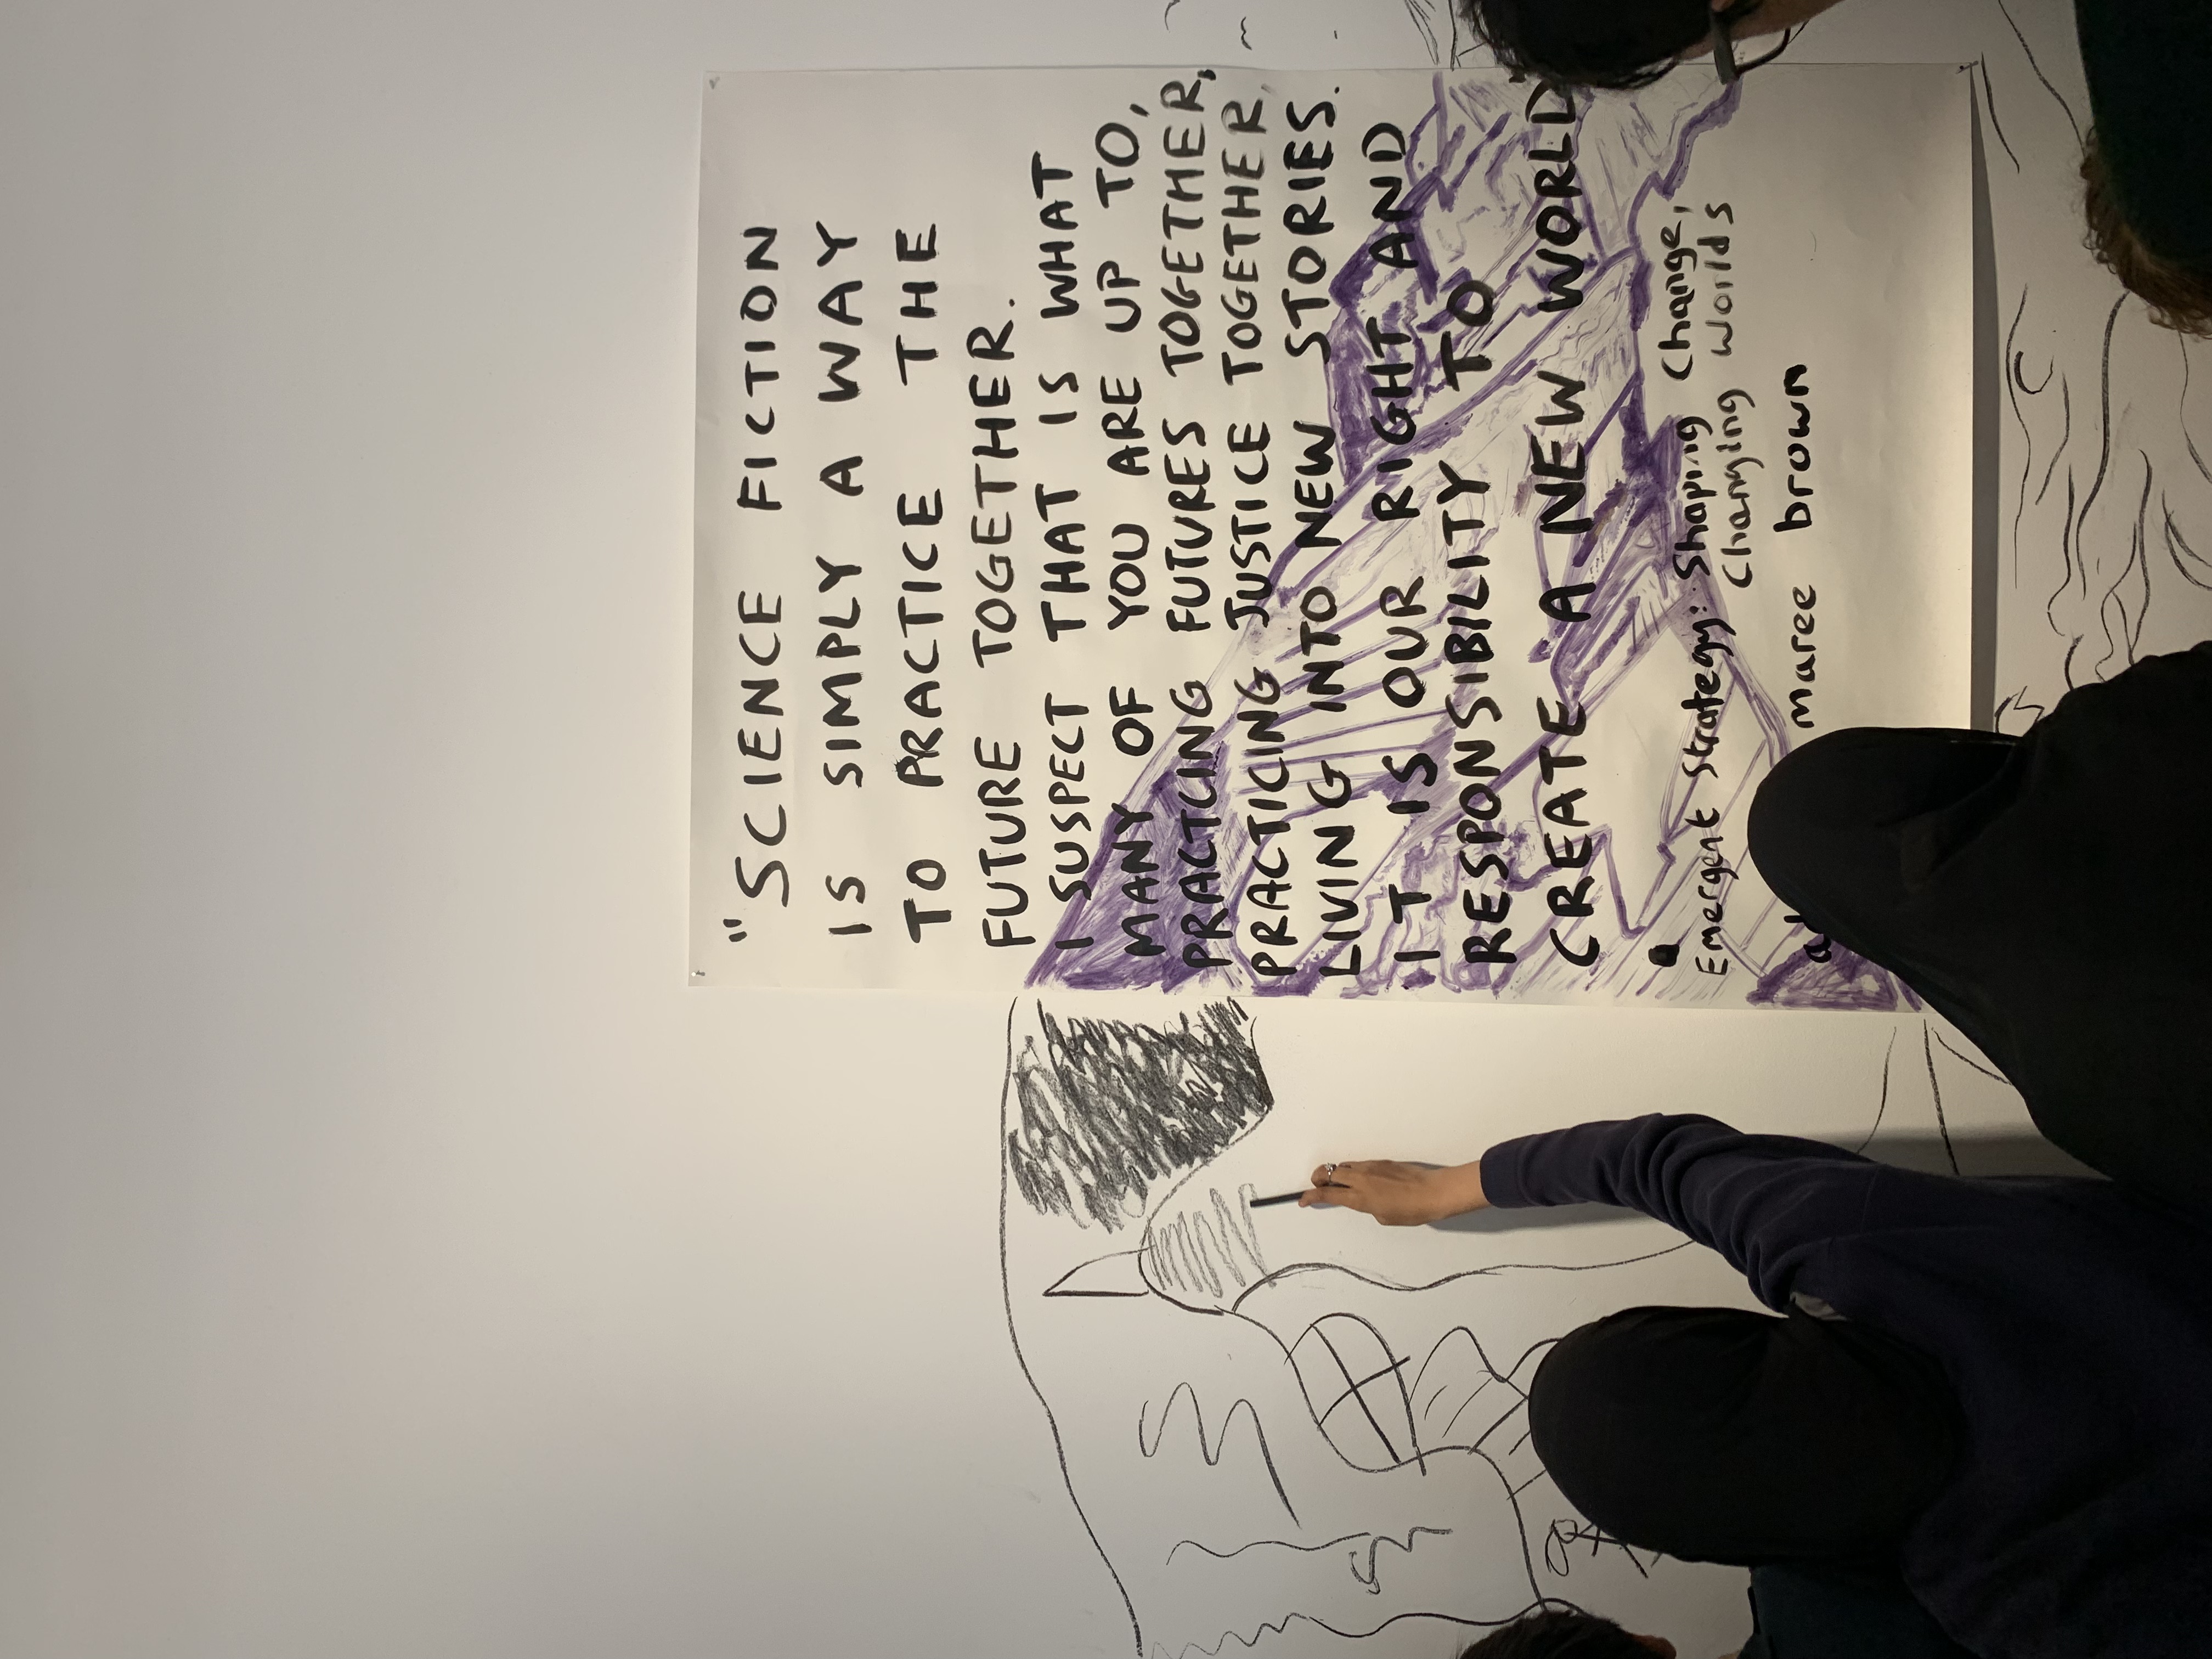 "SCIENCE FICTION
IS SIMPLY A WAY
TO PRACTICE THE
FUTURE TOGETHER.
I SUSPECT THAT IS WHAT
MANY OF YOU ARE UP TO,
PRACTICING FUTURES TOGETHER,
PRACTICING JUSTICE TOGETHER,
LIVING INTO NEW STORIES.
IT IS OUR RIGHT AND
RESPONSIBILITY TO
CREATE A NEW WORLD
Emergent Strategy: Shaping Change,
Changing Worlds
maree brown